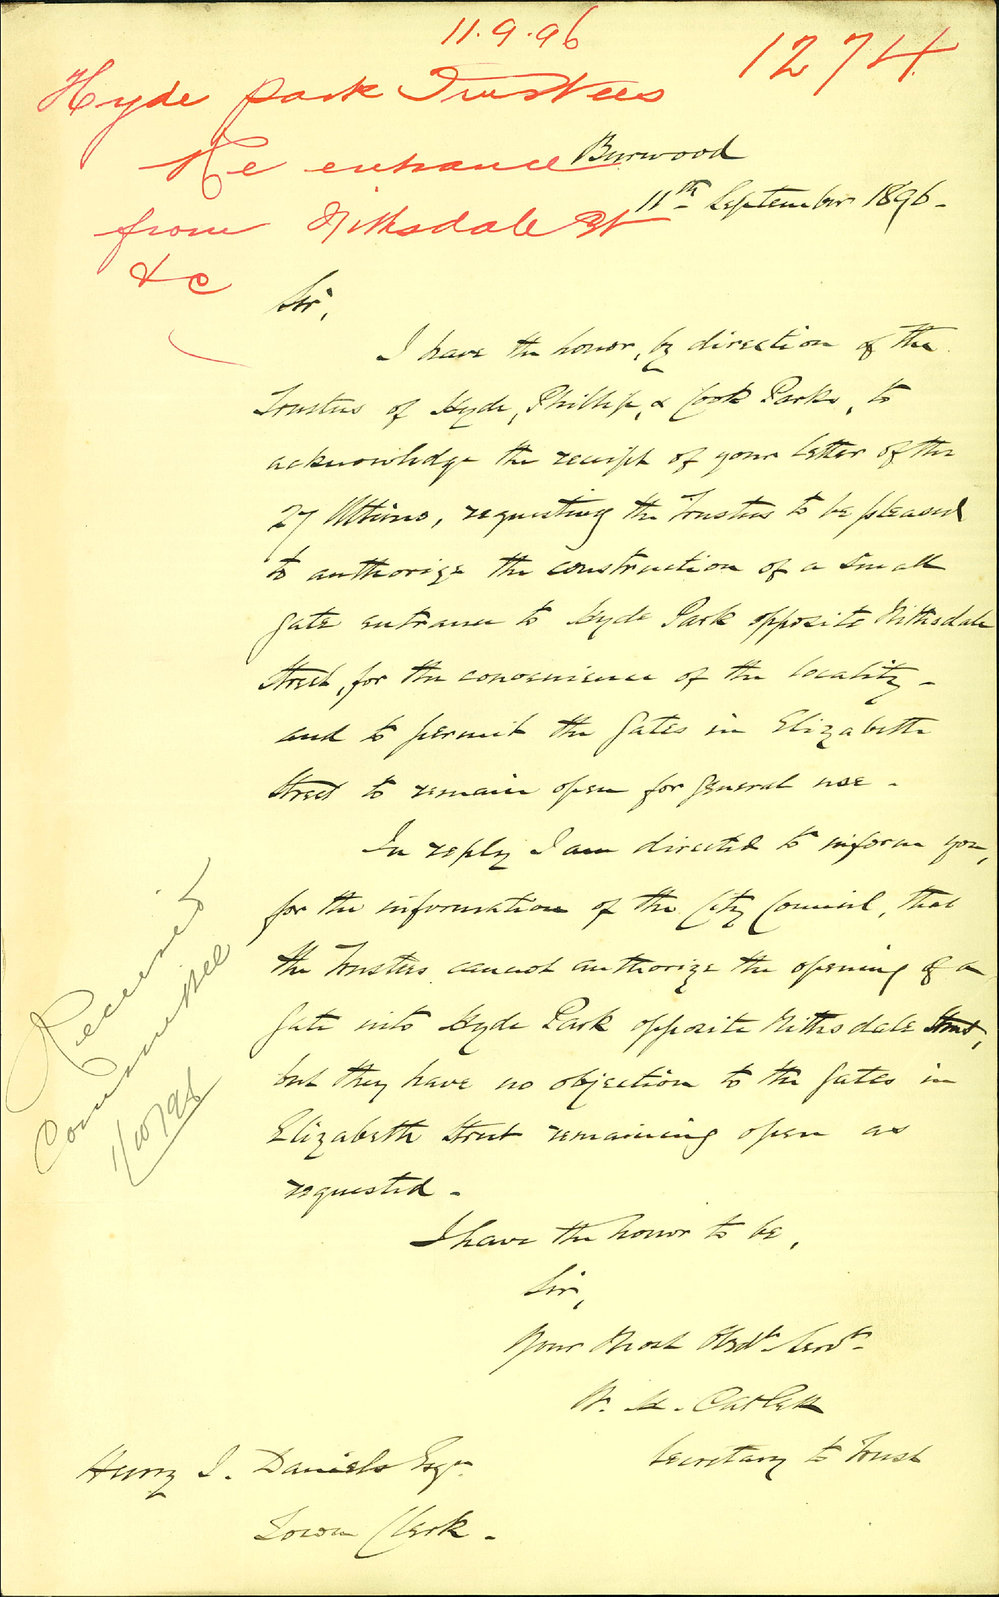 11.9.96
1274
Hyde Park Trustees
Re entrance
from Nithsdale St
&c
Burwood
11th September 1896-
Sir,
I have the honor, by direction of the
Trustees of Hyde, Phillip, & Cook Parks, to
acknowledge the receipt of your letter of the
27 Ultimo, requesting the Trustees to be pleased
to authorize the construction of a small
gate entrance to Hyde Park opposite Nithsdale
Street, for the convenience of the locality -
and to permit the gates in Elizabeth
Street to remain open for general use -
In reply I am directed to inform you,
for the information of the City Council, that
the Trustees cannot authorize the opening of a
gate into Hyde Park opposite Nithsdale Street,
but they have no objection to the gates in
Elizabeth Street remaining open as
requested -
I have the honor to be,
Sir,
Your Most Obdt Servt
W. M.
Secretary to Trust
Henry J. Daniels Esqre
Town Clerk -
Received
Committee
1/10/96